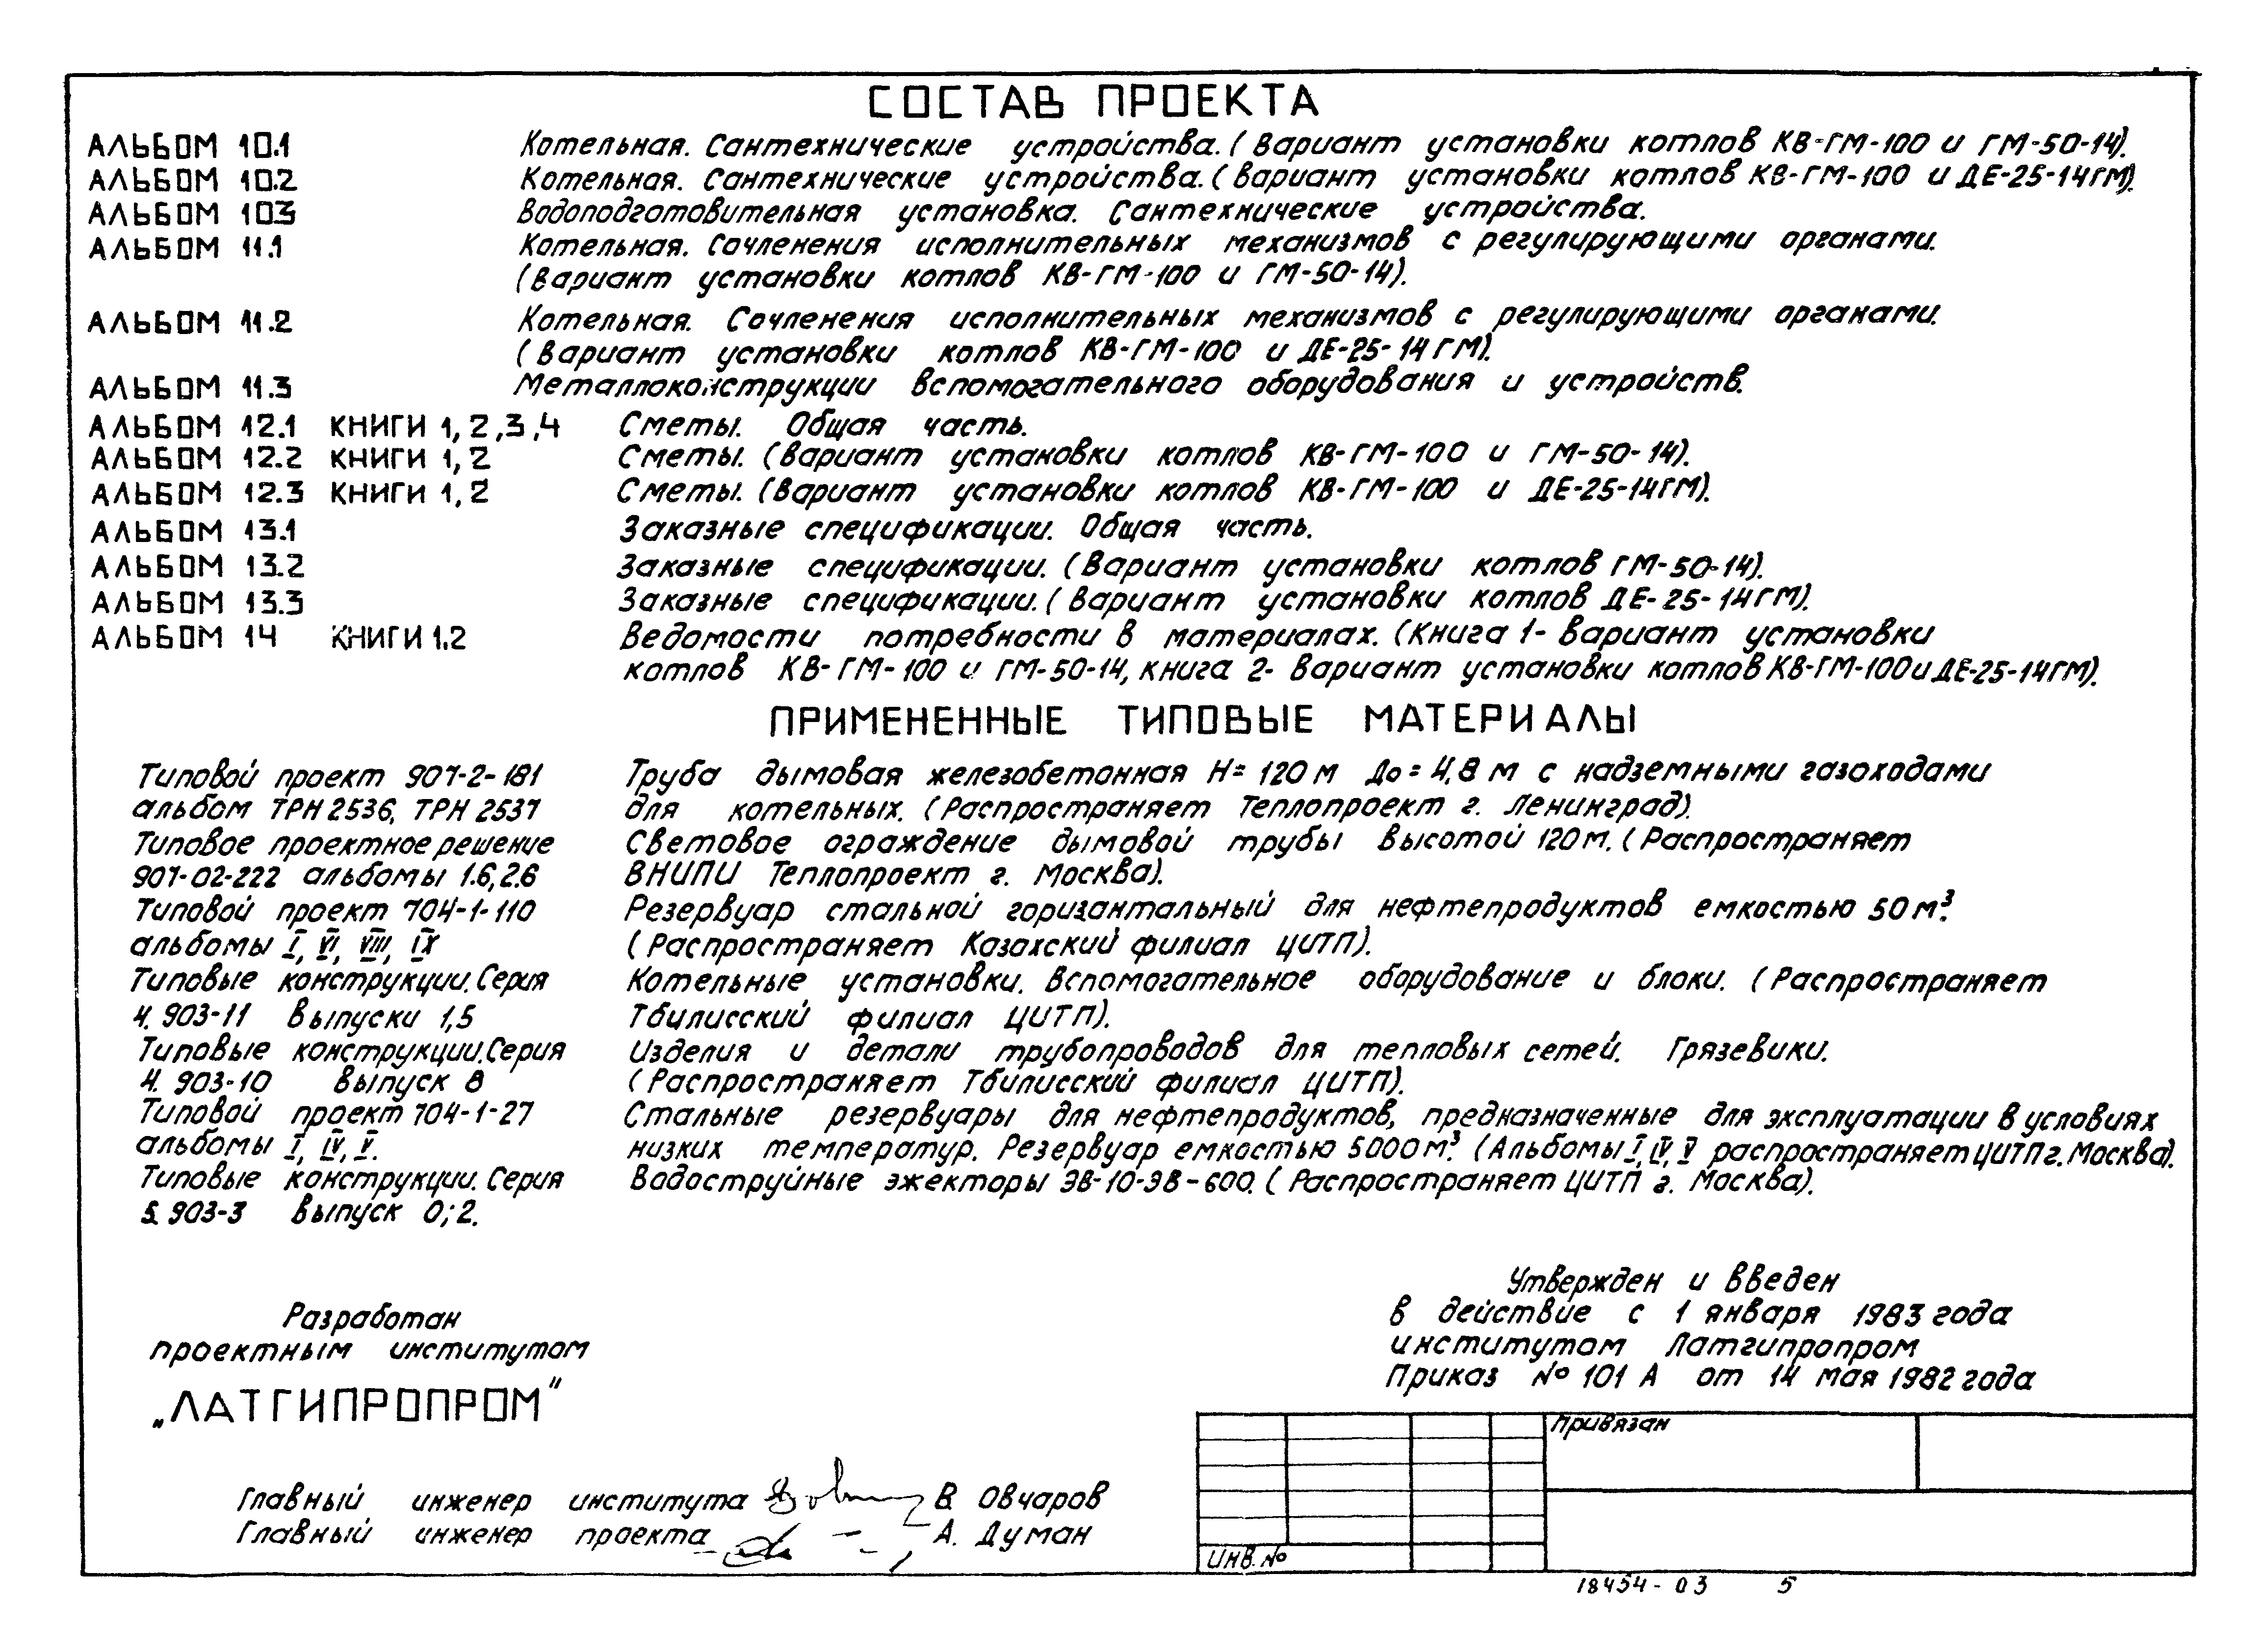 СОСТАВ ПРОЕКТА
АЛЬБОМ 10.1 Котельная. Сантехнические устройства. (Вариант установки котлов КВ-ГМ-100 и ГМ-50-14).
АЛЬБОМ 10.2 Котельная. Сантехнические устройства. (Вариант установки котлов КВ-ГМ-100 и ДЕ-25-14ГМ).
АЛЬБОМ 10.3 Водоподготовительная установка. Сантехнические устройства.
АЛЬБОМ 11.1 Котельная. Сочленения исполнительных механизмов с регулирующими органами.
(Вариант установки котлов КВ-ГМ-100 и ГМ-50-14).
АЛЬБОМ 11.2 Котельная. Сочленения исполнительных механизмов с регулирующими органами.
(Вариант установки котлов КВ-ГМ-100 и ДЕ-25-14ГМ).
АЛЬБОМ 11.3 Металлоконструкции вспомогательного оборудования и устройств.
АЛЬБОМ 12.1 КНИГИ 1, 2, 3, 4 Сметы. Общая часть.
АЛЬБОМ 12.2 КНИГИ 1, 2 Сметы. (Вариант установки котлов КВ-ГМ-100 и ГМ-50-14).
АЛЬБОМ 12.3 КНИГИ 1, 2 Сметы. (Вариант установки котлов КВ-ГМ-100 и ДЕ-25-14ГМ).
АЛЬБОМ 13.1 Заказные спецификации. Общая часть.
АЛЬБОМ 13.2 Заказные спецификации. (Вариант установки котлов ГМ-50-14).
АЛЬБОМ 13.3 Заказные спецификации. (Вариант установки котлов ДЕ-25-14ГМ).
АЛЬБОМ 14 КНИГИ 1.2 Ведомости потребности в материалах. (Книга 1- Вариант установки
котлов КВ-ГМ-100 и ГМ-50-14, книга 2- Вариант установки котлов КВ-ГМ-100 и ДЕ-25-14ГМ).
ПРИМЕНЕННЫЕ ТИПОВЫЕ МАТЕРИАЛЫ
Типовой проект 907-2-181 Труба дымовая железобетонная Н= 120 м До = 4,8 м с надземными газоходами
альбом ТРН 2536, ТРН 2537 для котельных. (Распространяет Теплопроект г. Ленинград).
Типовое проектное решение Световое ограждение дымовой трубы высотой 120 м. (Распространяет
907-02-222 альбомы 1.6, 2.6 ВНИПИ Теплопроект г. Москва).
Типовой проект 704-1-110 Резервуар стальной горизонтальный для нефтепродуктов емкостью 50 м³.
альбомы I, VI, VIII, IX (Распространяет Казахский филиал ЦИТП).
Типовые конструкции. Серия Котельные установки. Вспомогательное оборудование и блоки. (Распространяет
4. 903-11 Выпуски 1,5 Тбилисский филиал ЦИТП).
Типовые конструкции. Серия Изделия и детали трубопроводов для тепловых сетей. Грязевики.
4. 903-10 Выпуск 8 (Распространяет Тбилисский филиал ЦИТП).
Типовой проект 704-1-27 Стальные резервуары для нефтепродуктов, предназначенные для эксплуатации в условиях
альбомы I, IV, V. низких температур. Резервуар емкостью 5000 м³. (Альбомы I, IV, V распространяет ЦИТП г. Москва).
Типовые конструкции. Серия Водоструйные эжекторы ЭВ-10-ЭВ-600. (Распространяет ЦИТП г. Москва).
5. 903-3 Выпуск 0; 2.
Утвержден и введен
в действие с 1 января 1983 года
институтом Латгипропром
Приказ № 101 А от 14 мая 1982 года
Разработан
проектным институтом
„ЛАТГИПРОПРОМ"
Главный инженер института В. Овчаров
Главный инженер проекта А. Думан
Привязан
Инв. №
18454-03 5